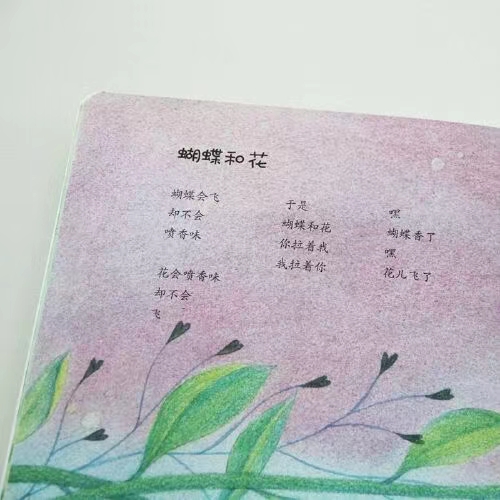 蝴蝶和花
蝴蝶会飞
却不会
喷香味
花会喷香味
却不会
飞
于是
蝴蝶和花
你拉着我
我拉着你
嘿
蝴蝶香了
嘿
花儿飞了